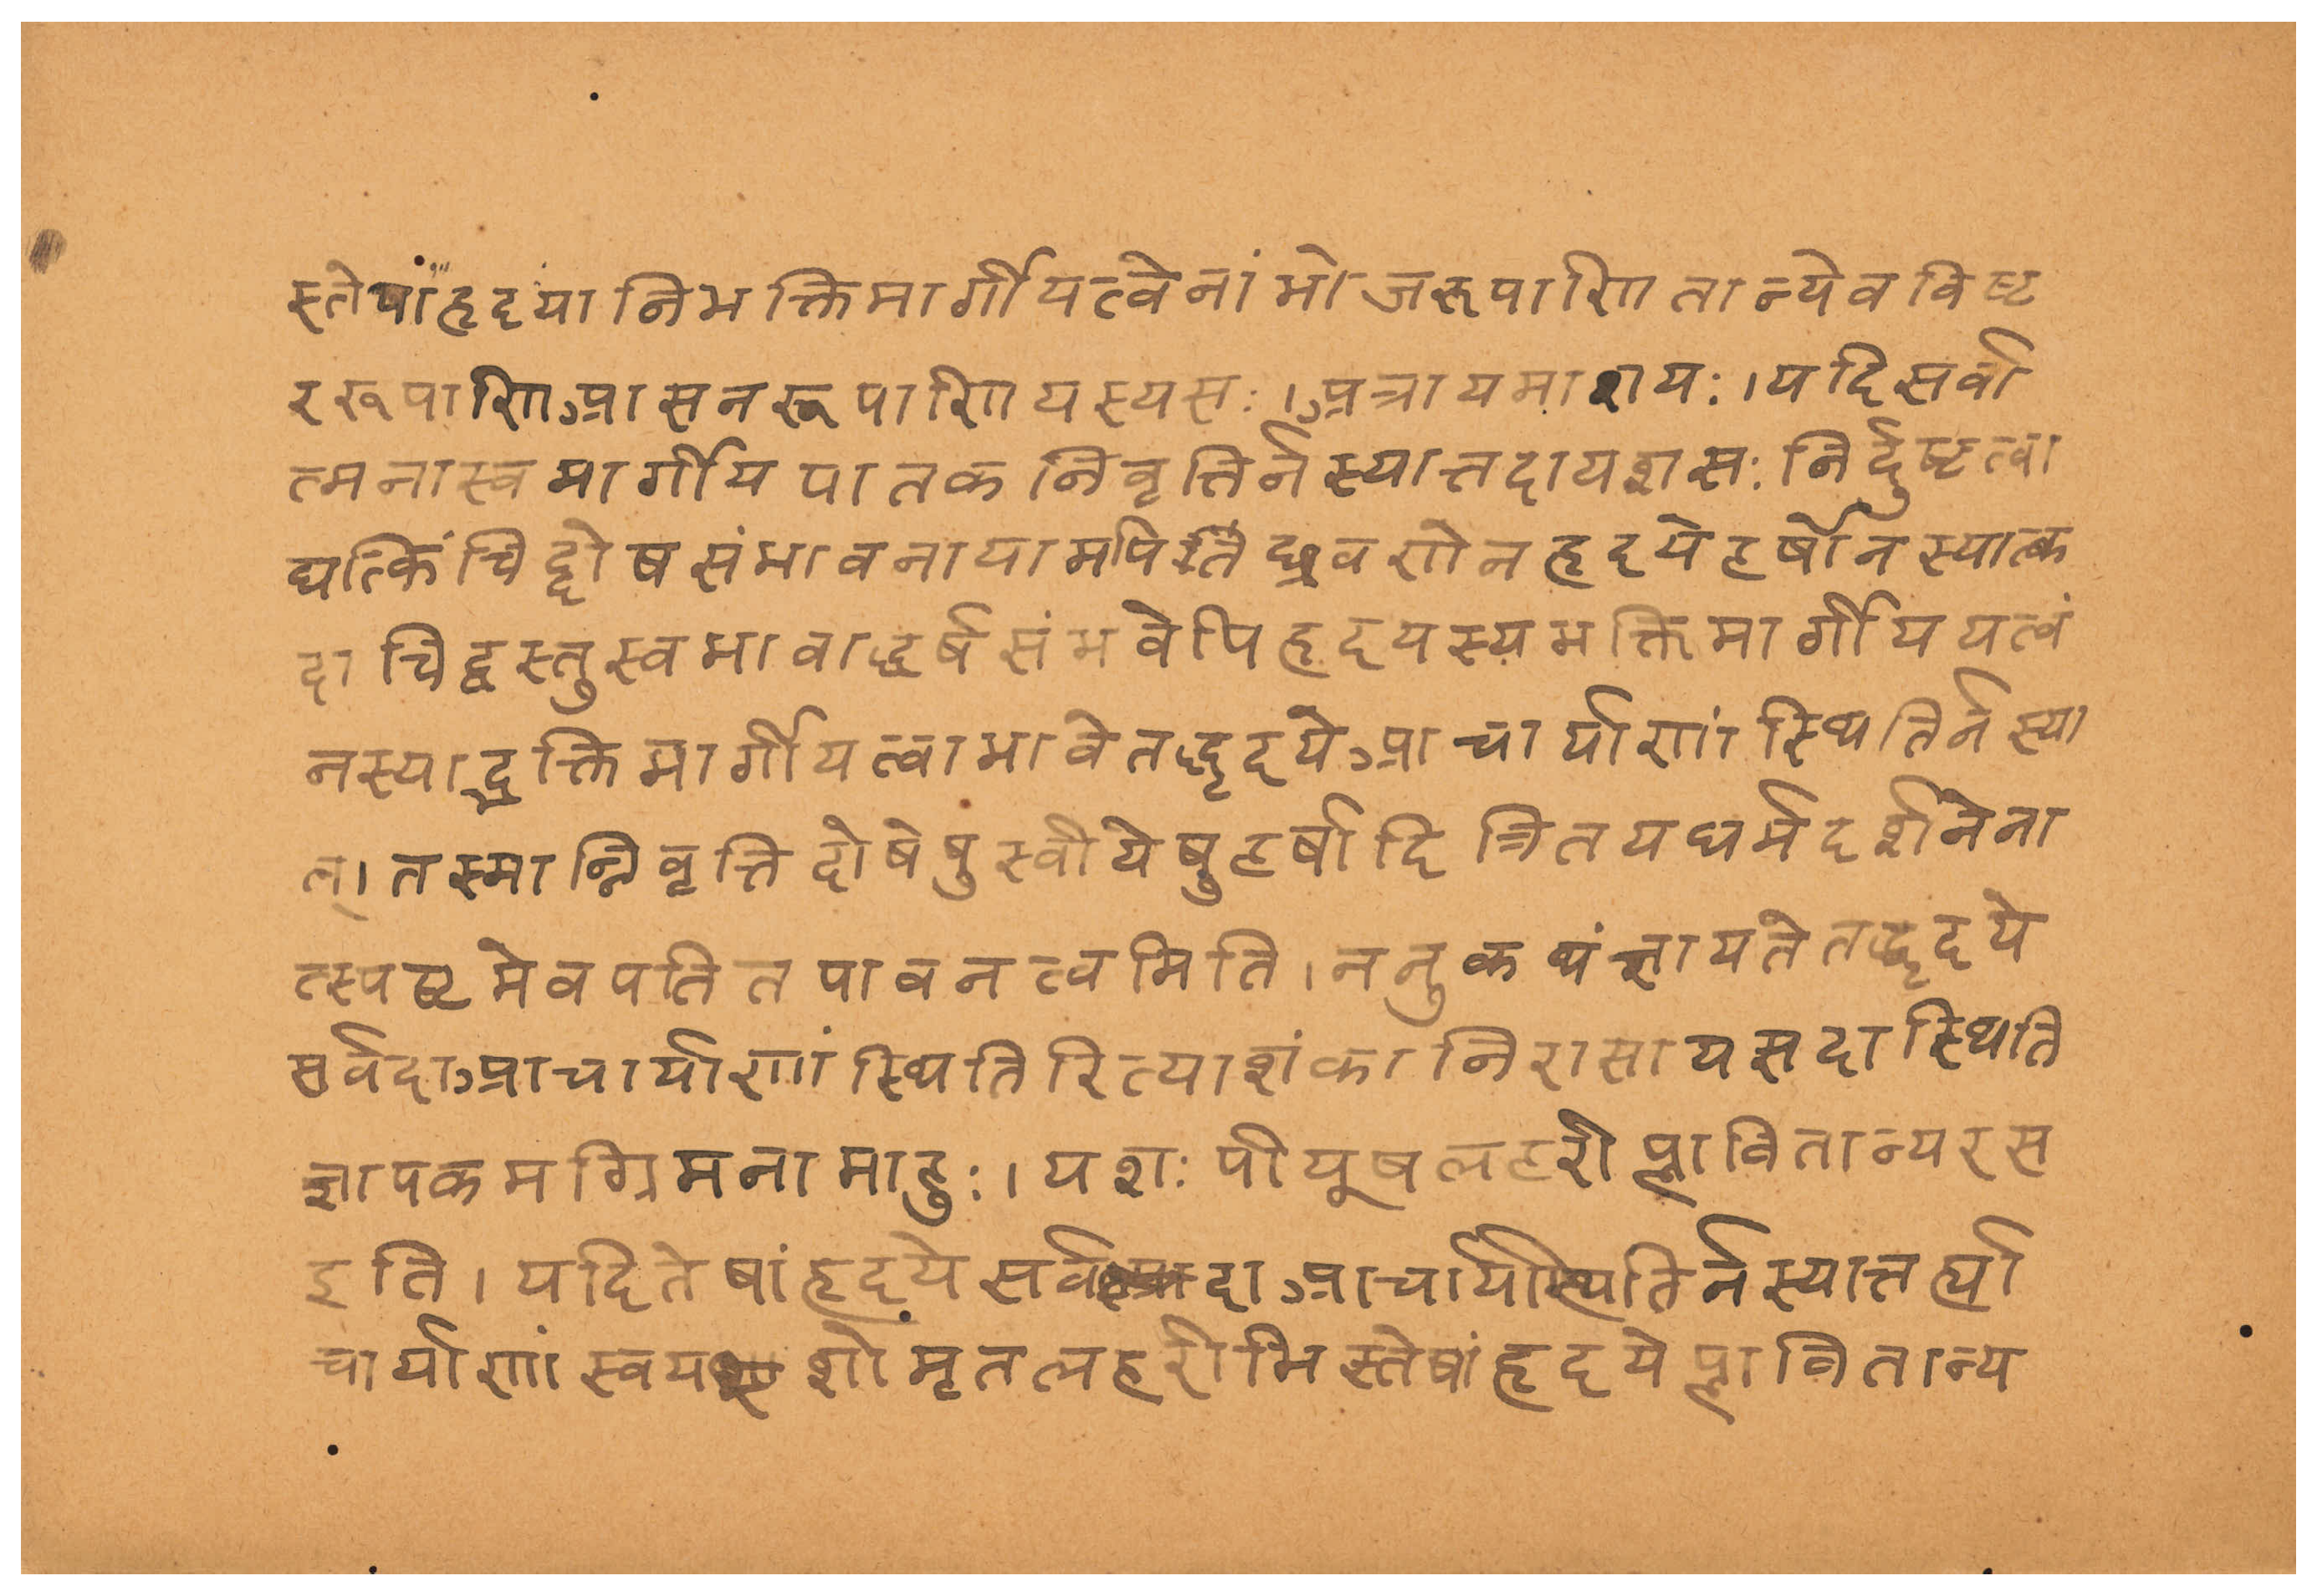 स्तेषांहृदयानिभक्तिमार्गीयत्वेनांभोजरूपाणितान्येवविष्ट
ररूपाणिआसनरूपाणियस्यसः।अत्रायमाशयः।यदिसर्वा
त्मनास्वमार्गीयपातकनिवृत्तिर्नस्यात्तदायशसःनिर्दुष्टत्वा
द्यत्किंचिद्दोषसंभावनायामपितच्छ्रवणेनहृदयेहर्षोनस्यात्क
दाचिद्वस्तुस्वभावाद्धर्षसंभवेपिहृदयस्यभक्तिमार्गीययत्वं
नस्याद्भक्तिमार्गीयत्वाभावेतद्धृदयेआचार्याणांस्थितिर्नस्या
त्।तस्मान्निवृत्तिदोषेषुस्वीयेषुहर्षादित्रितयधर्मदर्शनेना
त्स्पष्टमेवपतितपावनत्वमिति।ननुकथंज्ञायतेतद्धृदये
सर्वदाआचार्याणांस्थितिरित्याशंकानिरासायसदास्थिति
ज्ञापकमग्रिमनामाहुः।यशःपीयूषलहरीप्लावितान्यरस
इति।यदितेषांहृदयेसर्वदाआचार्यास्थितिर्नस्यात्तर्ह्या
चार्याणांस्वयशोमृतलहरीभिस्तेषांहृदयेप्लावितान्य